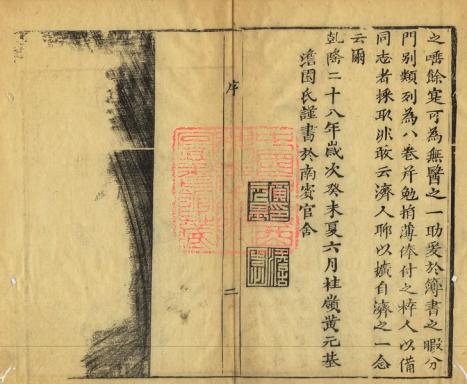 之唾餘寔可為無醫之一助爰於簿書之暇分
門別類列為八卷并勉捐薄俸付之梓人以備
同志者採取非敢云濟人聊以擴自濟之一念
云爾
乾隆二十八年歲次癸未夏六月桂嶺黃元基
澹園氏謹書於南賓官舍
序
二